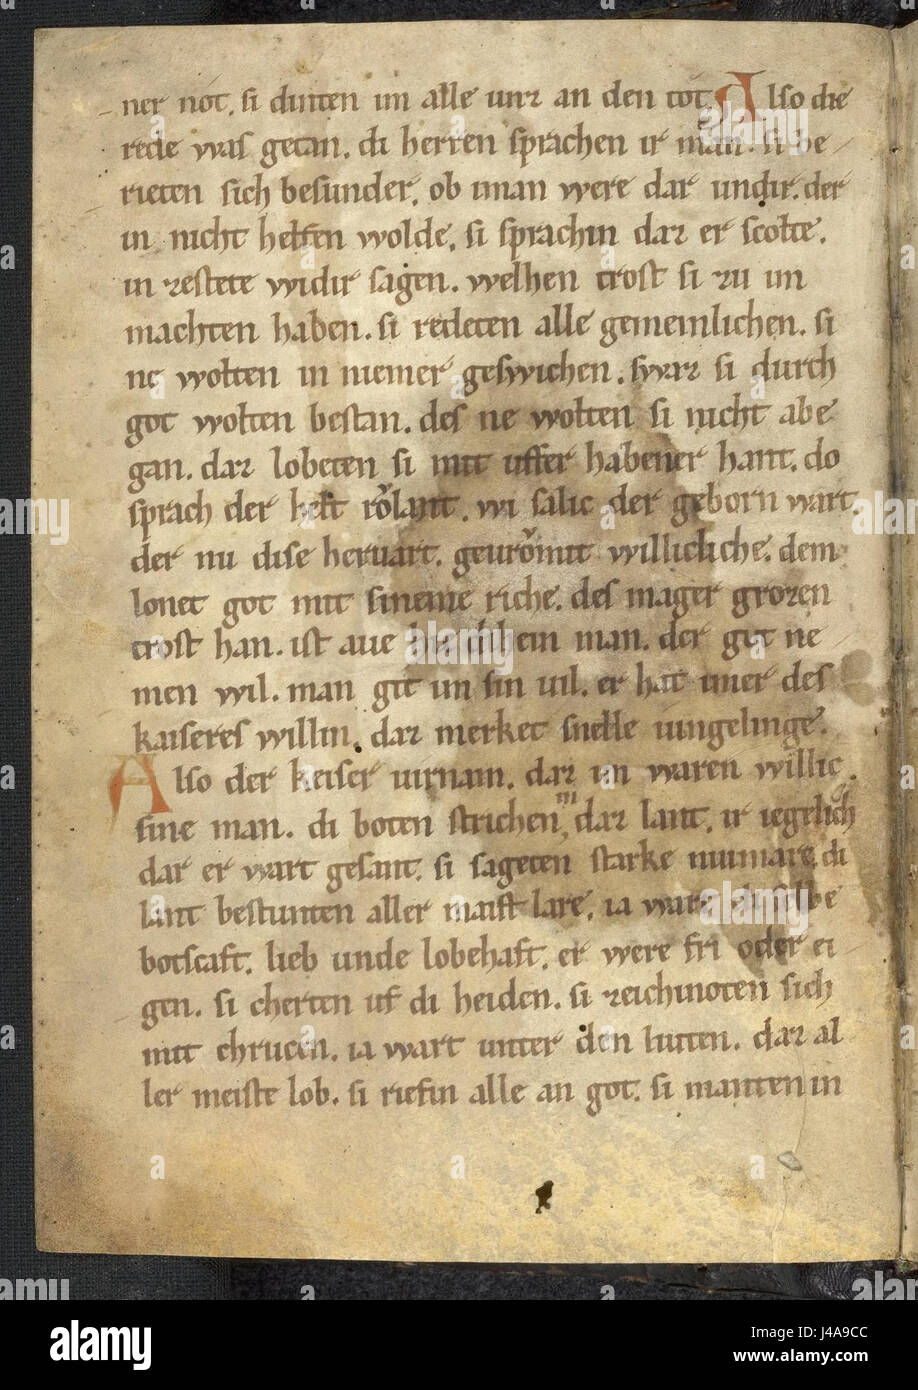 ner not. si dinten im alle unz an den tot. Also die
rede was getan. di herren sprachen ir man. si be
rieten sich besunder. ob iman were dar undir. der
in nicht helfen wolde. si sprachin daz er scolte.
in zestete widir sagen. welhen trost si zu im
machten haben. si redeten alle gemeinlichen. si
ne wolten in niemer geswichen. swaz si durch
got wolten bestan. des ne wolten si nicht abe
gan. daz lobeten si mit uffer habener hant. do
sprach der helt rolant. wi salic der geborn wart.
der nu dise heruart. geuromit willicliche. dem
lonet got mit sineme riche. des mager grozen
trost han. ist aue hie dihein man. der gut ne
men wil. man git im sin uil. er hat imer des
kaiseres willin. daz merket snelle iungelinge.
Also der keiser uirnam. daz im waren willic
sine man. di boten strichen in daz lant. ir iegelich
dar er wart gesant. si sageten starke niumare. di
lant bestunten aller maist lare. ia ware diselbe
botscaft. lieb unde lobehaft. er were fri oder ei
gen. si cherten uf di heiden. si zeichinoten sich
mit chrucen. ia wart unter den luten. daz al
ler meiste lob. si riefin alle an got. si manten in
alamy
alamy stock photo
J4A9CC
www.alamy.com